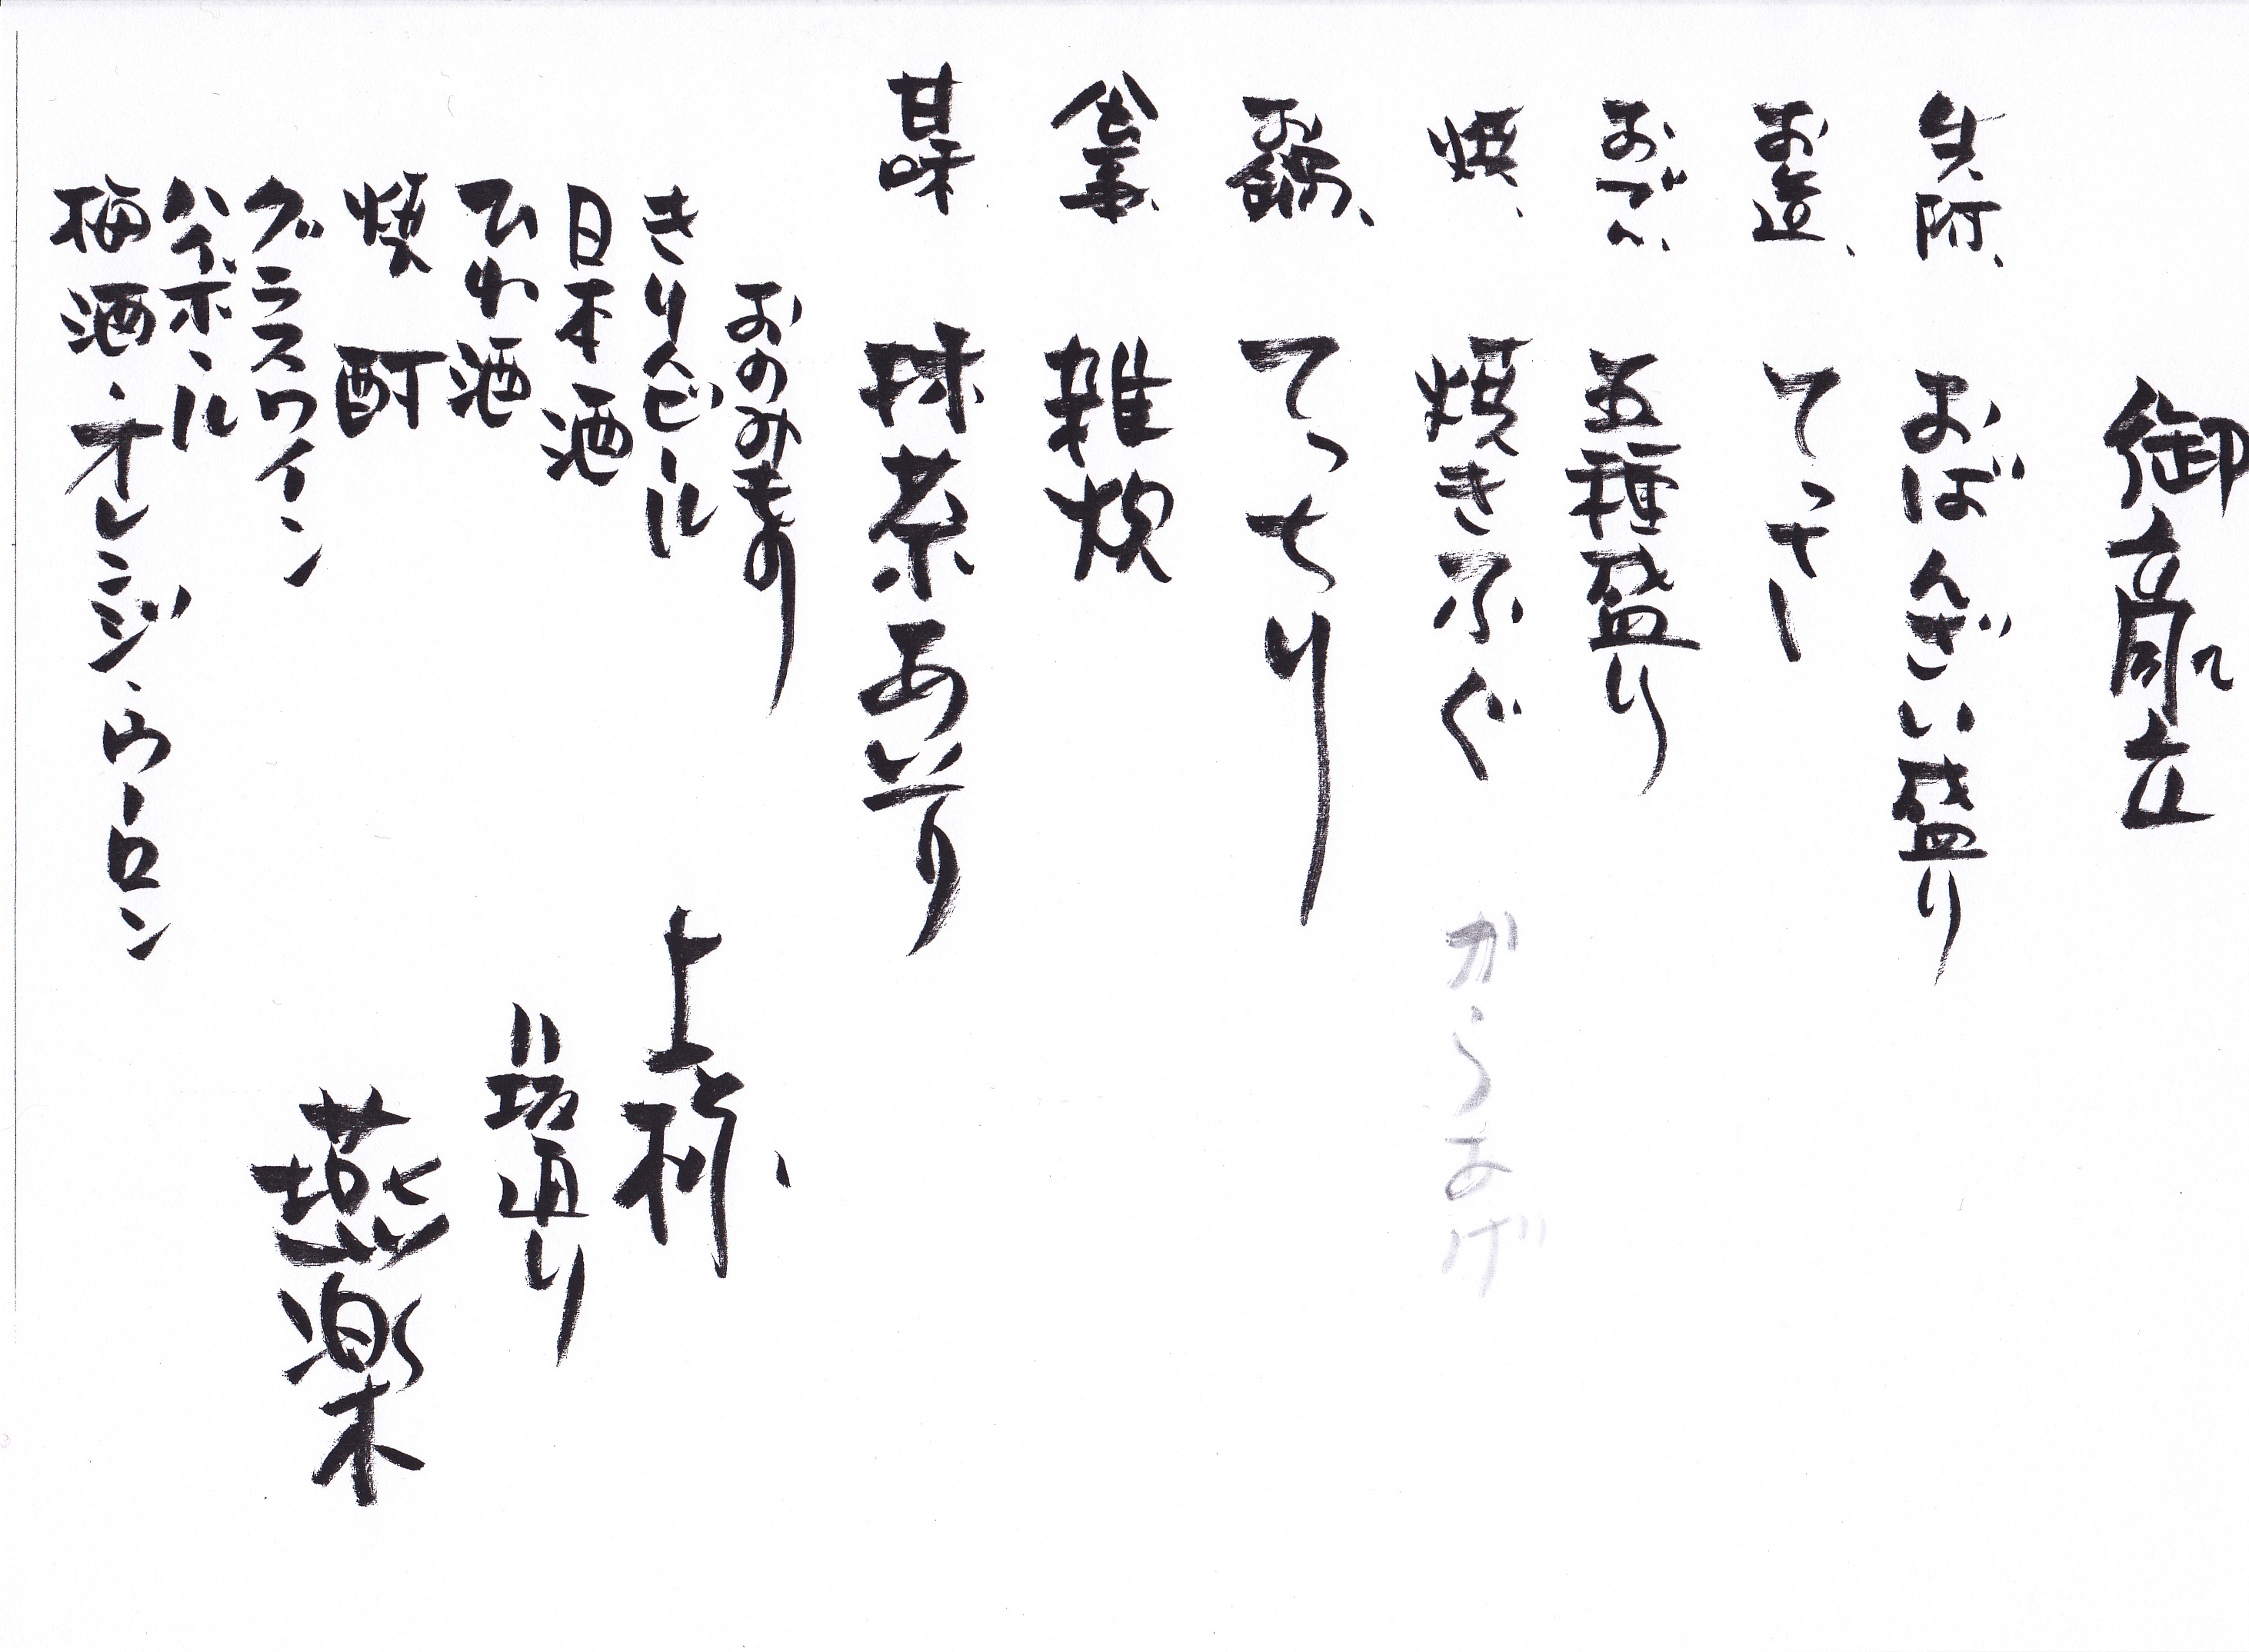 御献立
先附、 おばんざい盛り
お造、 てっさ
おでん、 五種盛り
焼、 焼きふぐ からあげ
お鍋、 てっちり
食事、 雑炊
甘味 抹茶あいす
おのみもの
きりんビール
日本酒
ひれ酒
焼酎
グラスワイン
ハイボール
梅酒、オレンジ、ウーロン
八坂通り
燕楽